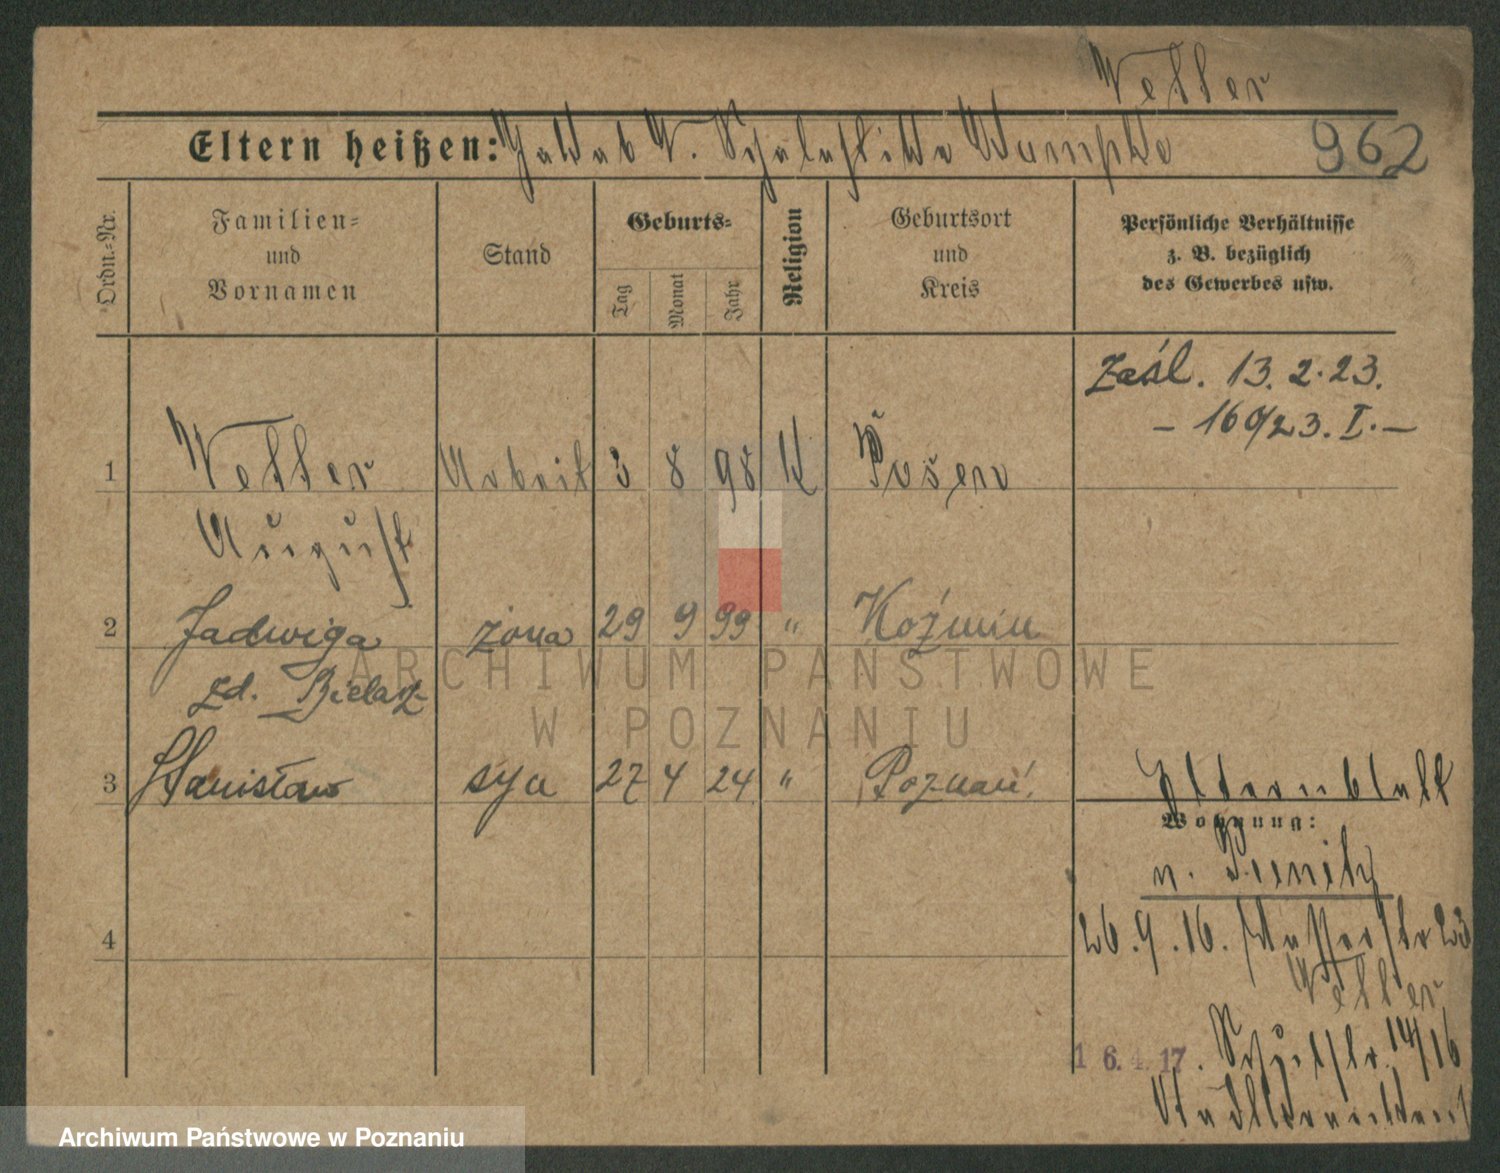 Vetter
Eltern heißen: Jakob V. 962
Ordn.-Nr.
Familien-
und
Vornamen
Stand
Geburts-
Tag
Monat
Jahr
Religion
Geburtsort
und
Kreis
Persönliche Verhältnisse
z. B. bezüglich
des Gewerbes usw.
zaśl. 13.2.23.
- 169/23. I. -
1 Vetter Arbeit 3 8 98 K Posen
August
2 Jadwiga żona 29 9 99 " Koźmin
zd. Bielaz-
3 Stanisław syn 27 4 24 " Poznań
Elternblatt
Wohnung:
n.
26.9.16. 23
Vetter
16.4.17. Schulstr. 14/16
4
ARCHIWUM PAŃSTWOWE
W POZNANIU
Archiwum Państwowe w Poznaniu